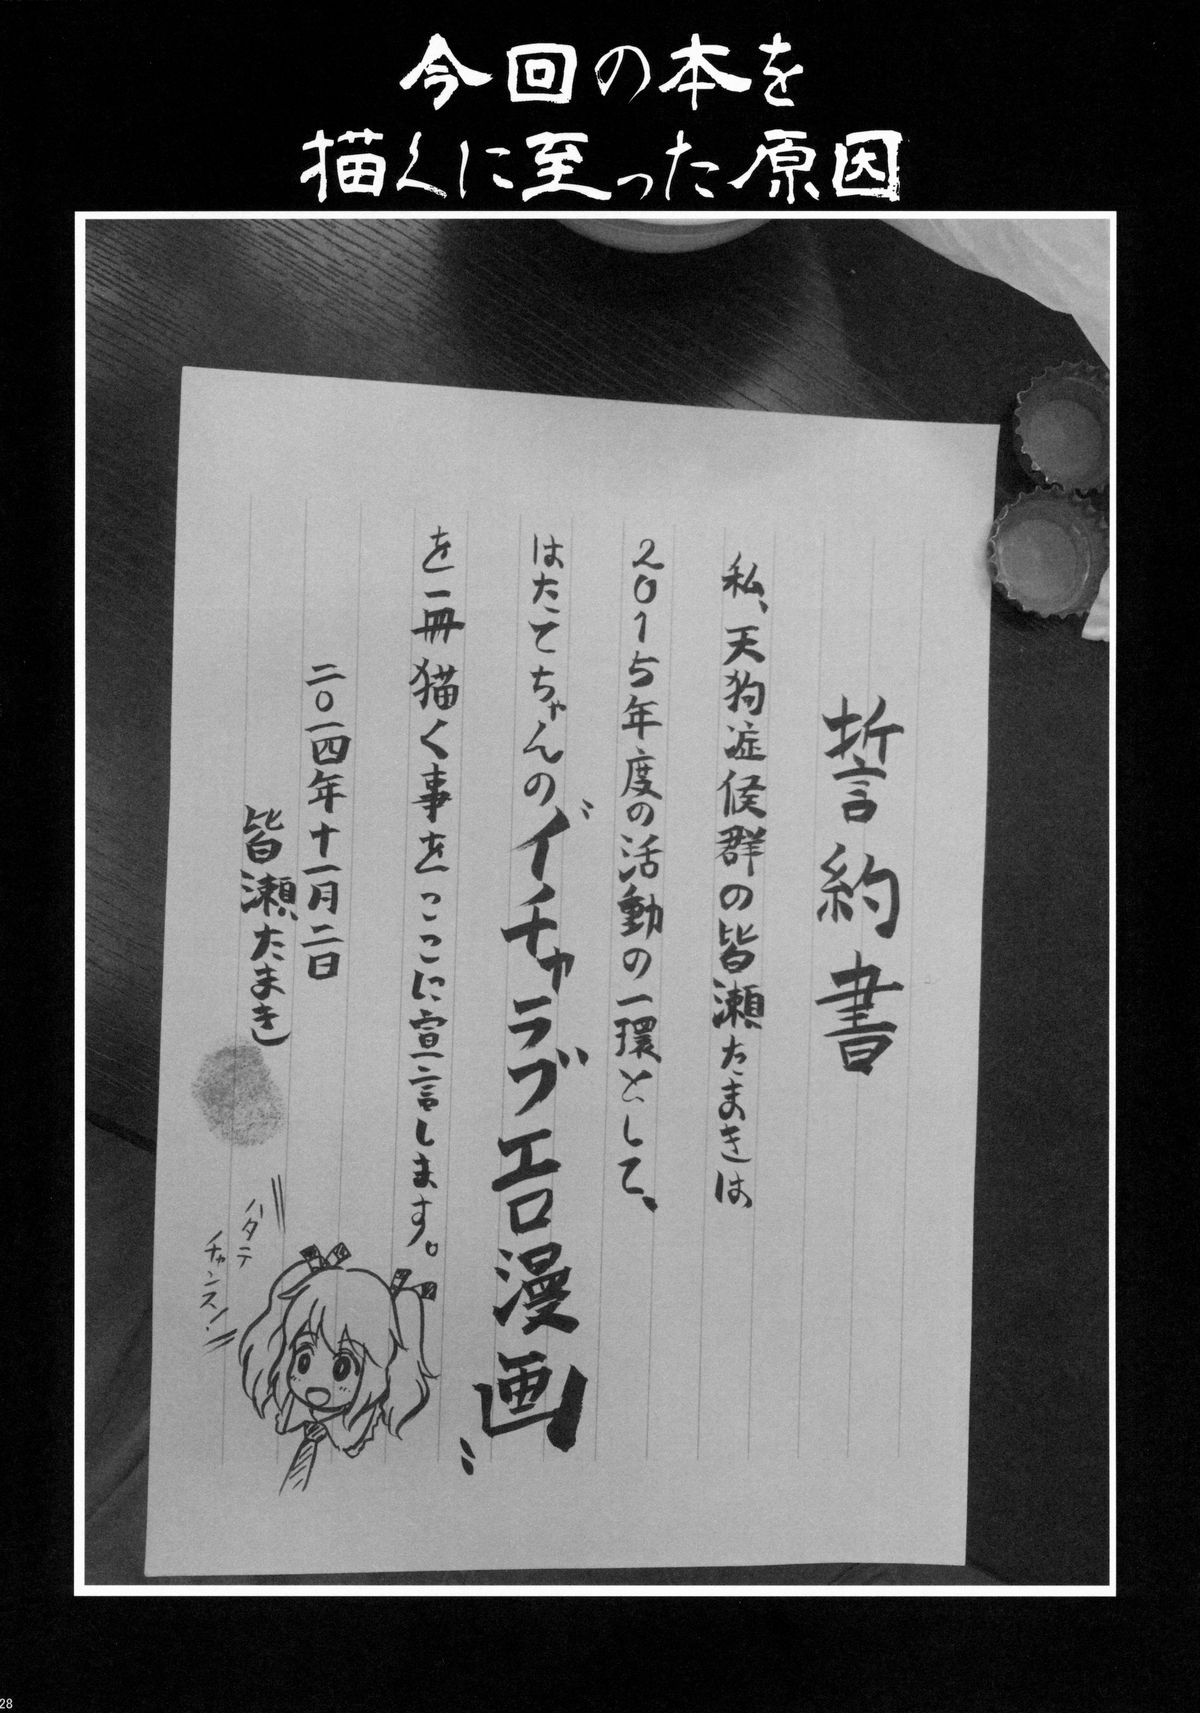 今回の本を
描くに至った原因
誓約書
私、天狗症候群の皆瀬たまきは
2015年度の活動の一環として、
はたてちゃんの"イチャラブエロ漫画"
を一冊猫く事をここに宣言します。
二〇一四年十一月二日
皆瀬たまき
ハタテ
チャンスン!
28